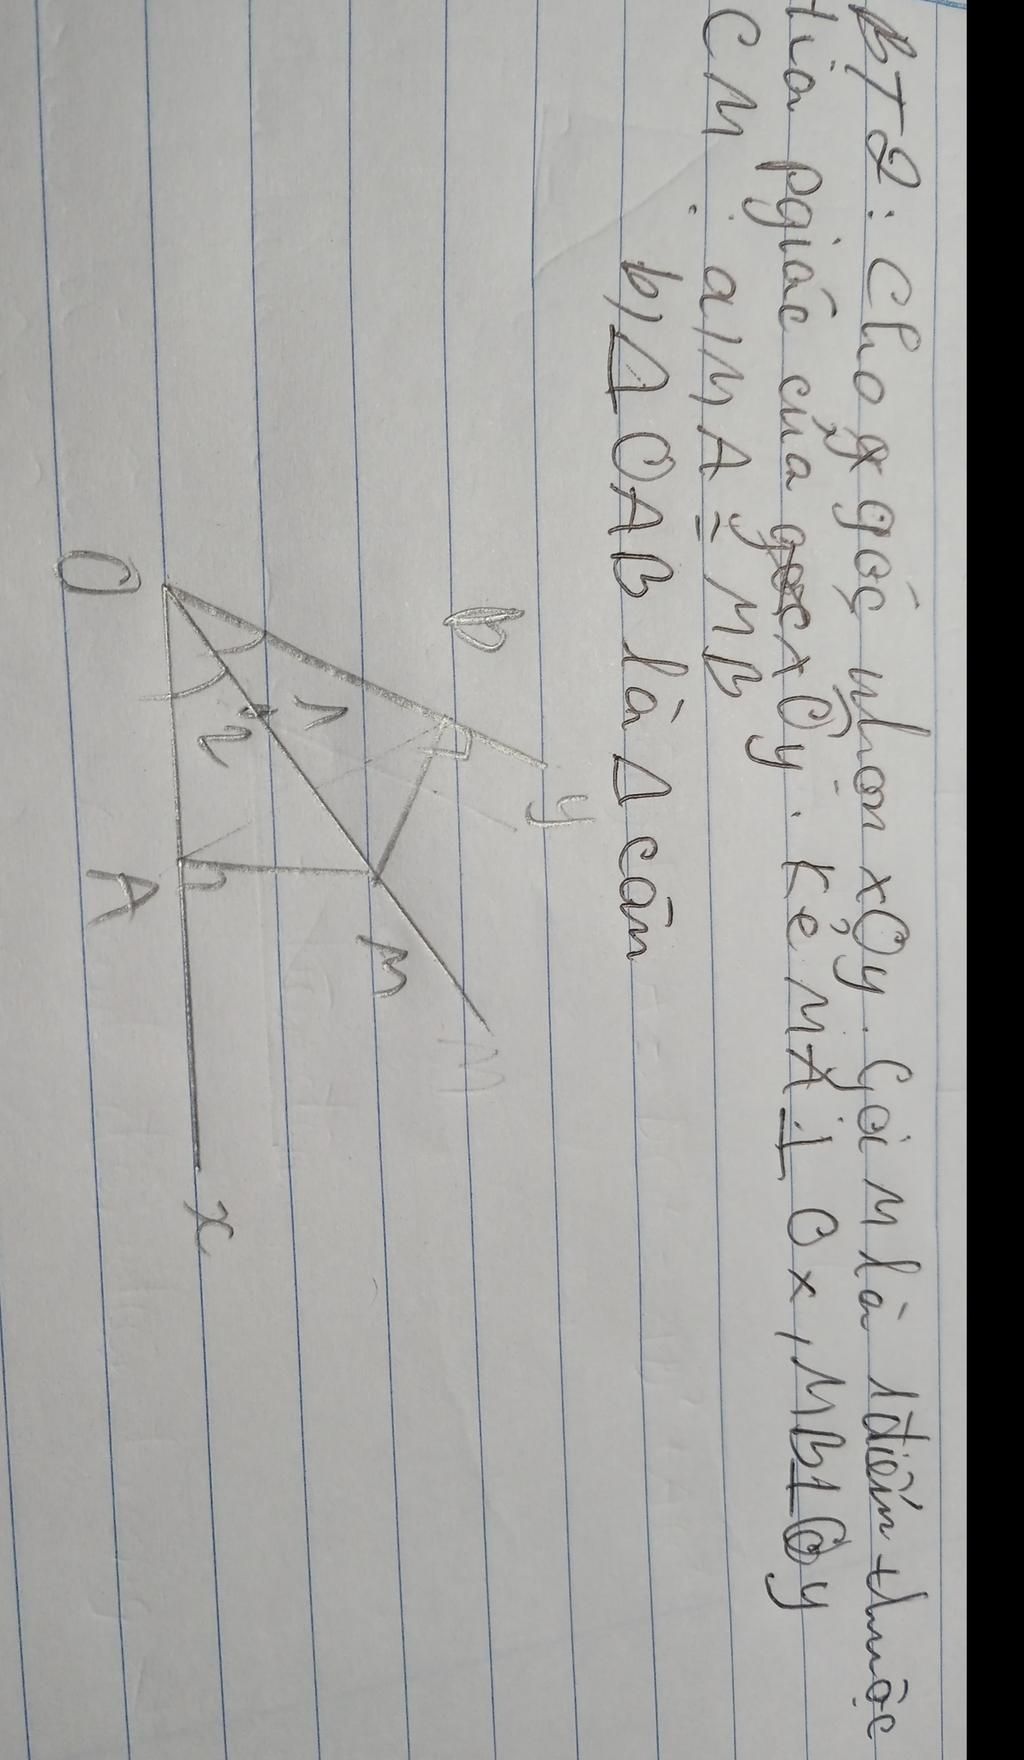 BT2: Cho góc nhọn xOy. Gọi M là 1 điểm thuộc
tia pgiác của xOy. Kẻ MA ⊥ Ox, MB ⊥ Oy
CM: a, MA = MB
b, Δ OAB là Δ cân
b
y
1
2
M
M
O
A
x